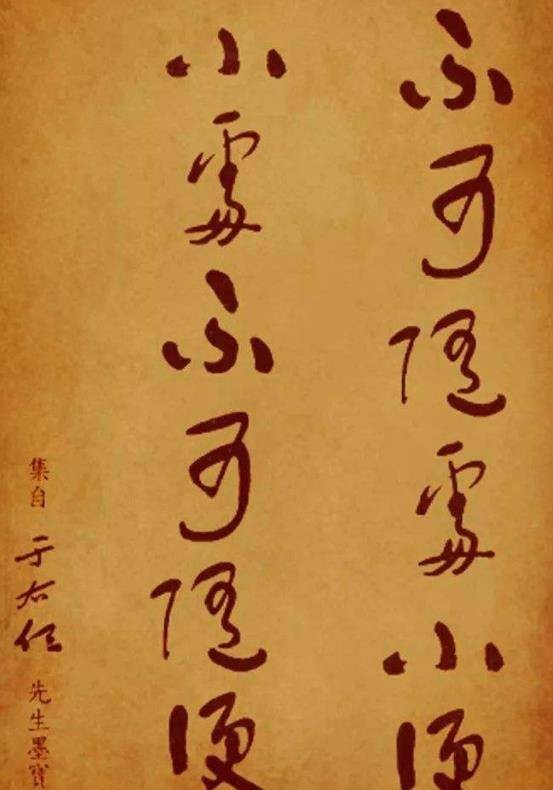 不可隨處小便
小處不可隨便
集自于右任先生墨寶